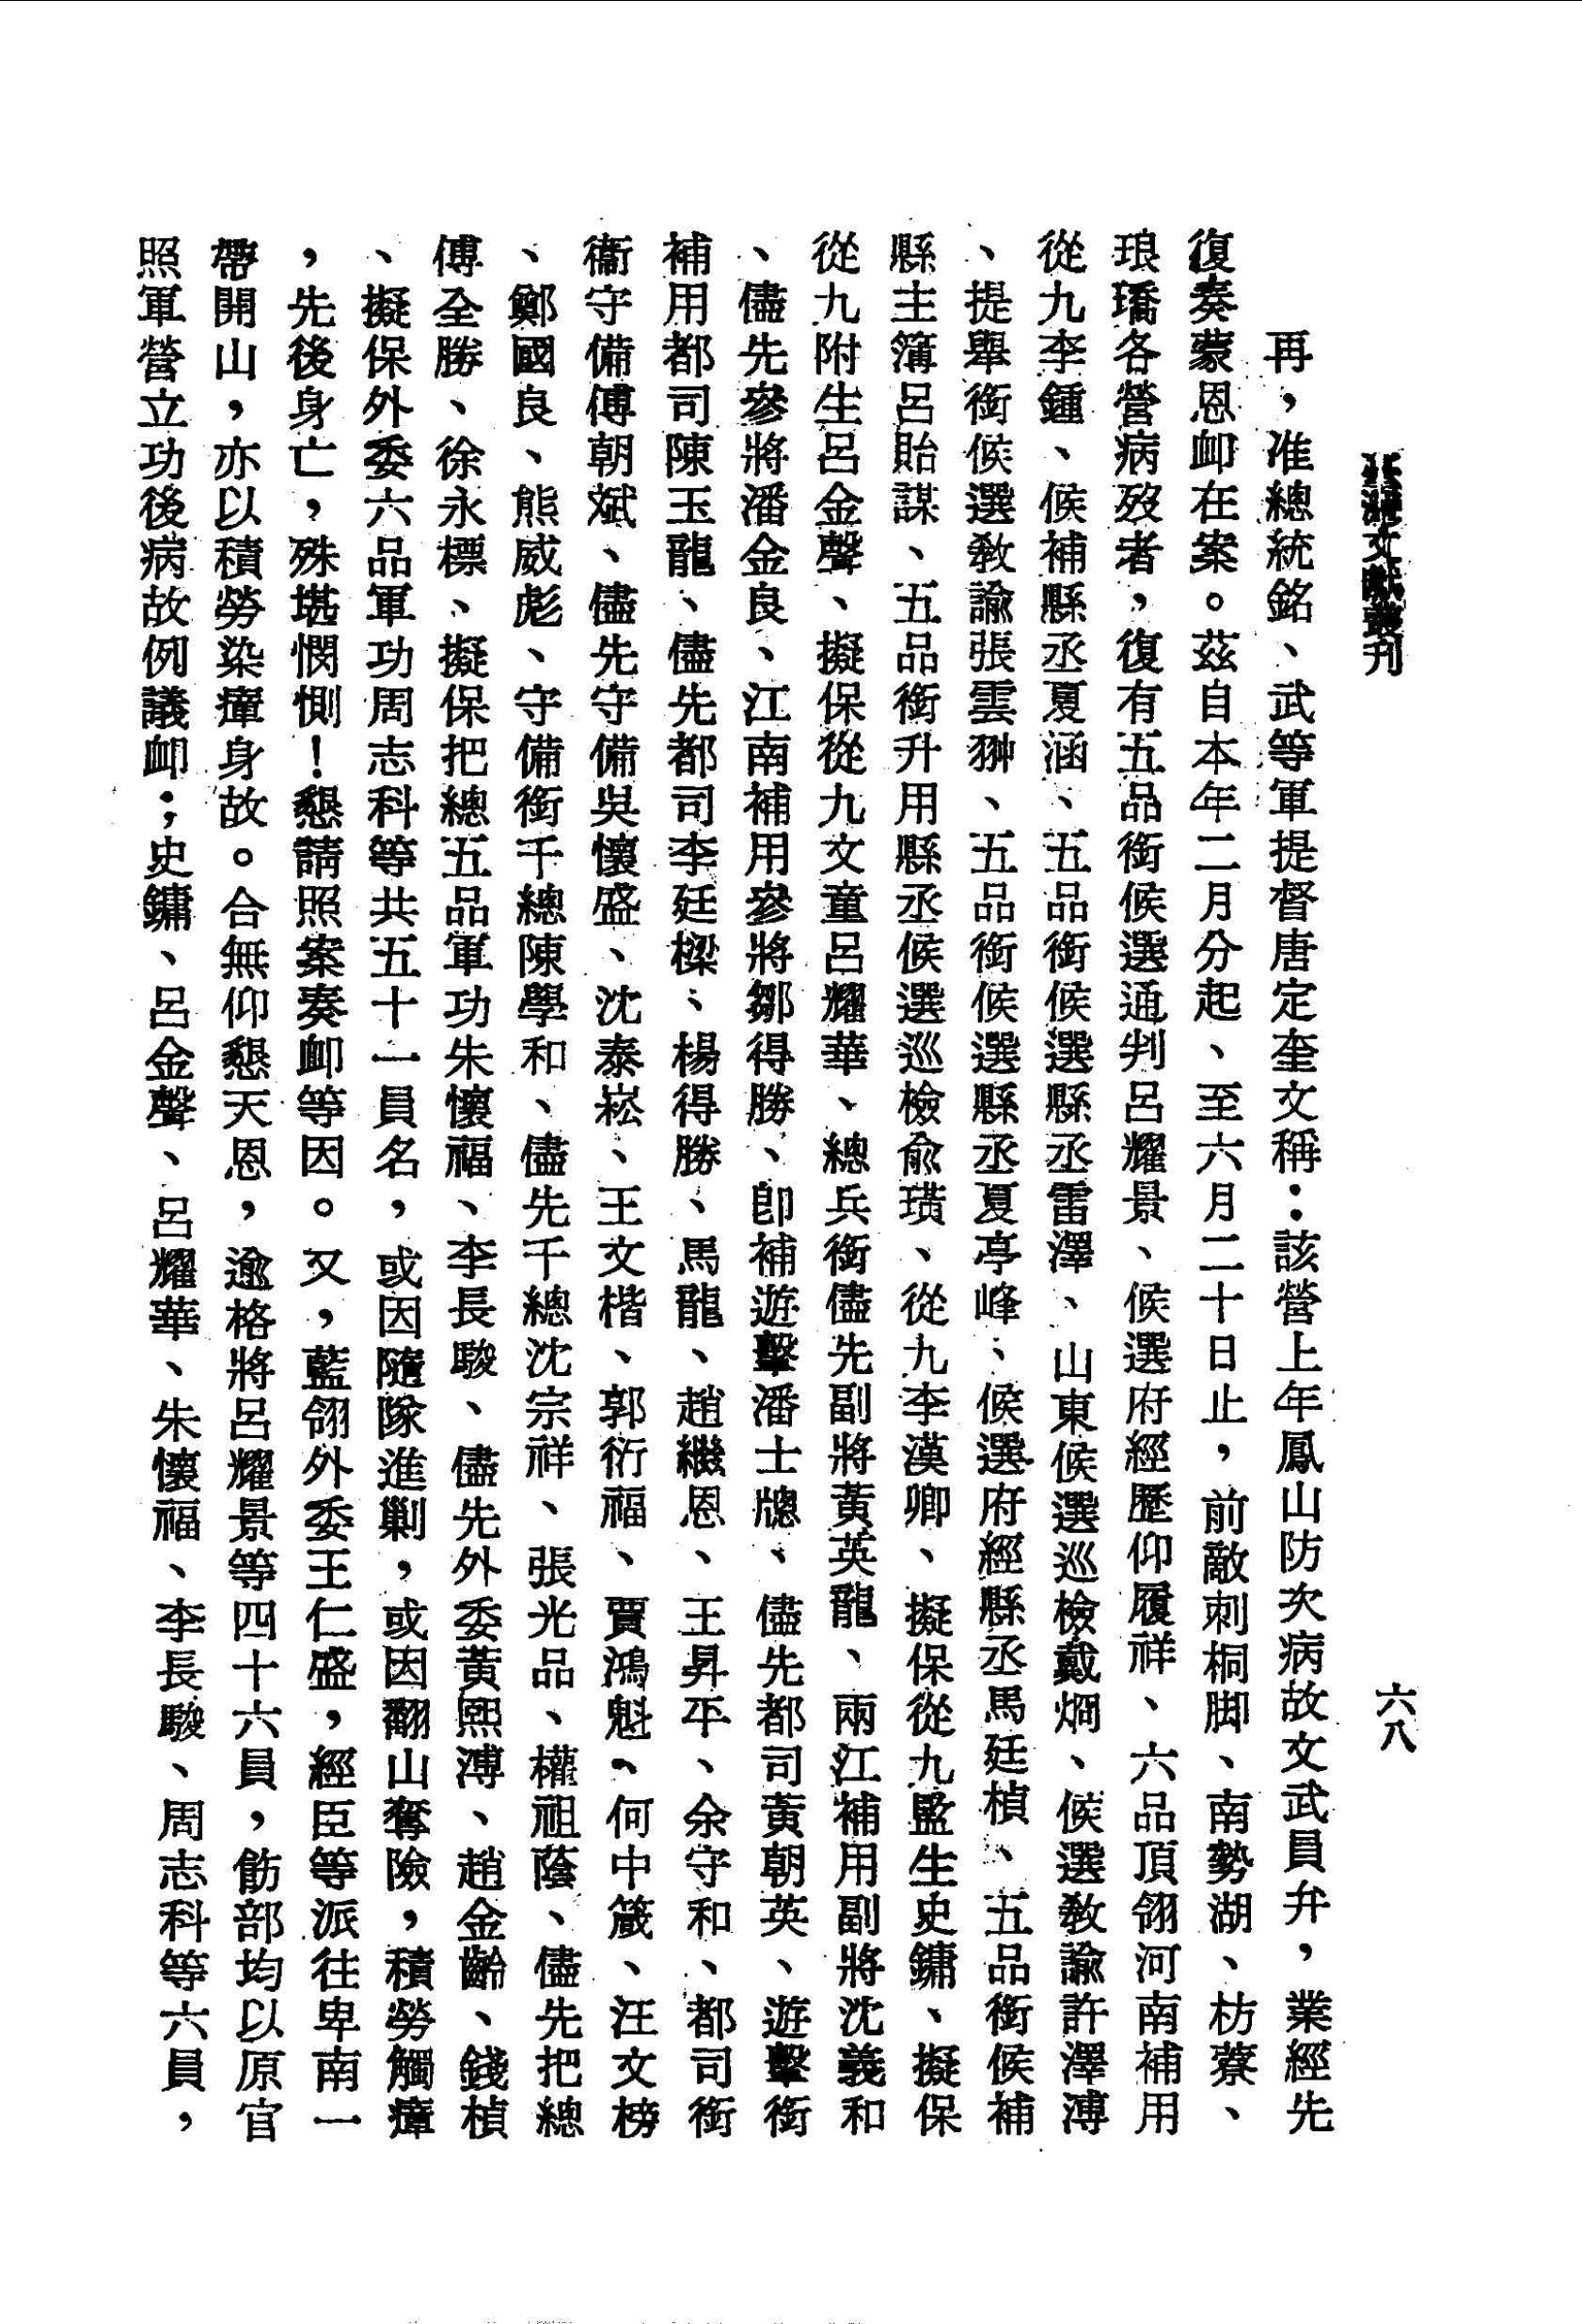 臺灣文獻叢刊
六八
再，准總統銘、武等軍提督唐定奎文稱：該營上年鳳山防次病故文武員弁，業經先
復奏蒙恩卹在案。茲自本年二月分起、至六月二十日止，前敵刺桐脚、南勢湖、枋藔、
琅𤩝各營病歿者，復有五品銜候選通判呂耀景、候選府經歷仰履祥、六品頂翎河南補用
從九李鍾、候補縣丞夏涵、五品銜候選縣丞雷澤、山東候選巡檢戴烱、候選敎諭許澤溥
、提舉銜候選敎諭張雲翀、五品銜候選縣丞夏亭峰、候選府經縣丞馬廷楨、五品銜候補
縣主簿呂貽謀、五品銜升用縣丞候選巡檢兪璜、從九李漢卿、擬保從九監生史鏞、擬保
從九附生呂金聲、擬保從九文童呂耀華、總兵銜儘先副將黃英龍、兩江補用副將沈義和
、儘先參將潘金良、江南補用參將鄒得勝、卽補遊擊潘士牕、儘先都司黃朝英、遊擊銜
補用都司陳玉龍、儘先都司李廷樑、楊得勝、馬龍、趙繼恩、王昇平、余守和、都司銜
衞守備傅朝斌、儘先守備吳懷盛、沈泰崧、王文楷、郭衍福、賈鴻魁、何中箴、汪文榜
、鄭國良、熊威彪、守備銜千總陳學和、儘先千總沈宗祥、張光品、權祖蔭、儘先把總
傅全勝、徐永標、擬保把總五品軍功朱懷福、李長駿、儘先外委黃熙溥、趙金齡、錢楨
、擬保外委六品軍功周志科等共五十一員名，或因隨隊進剿，或因翻山奪險，積勞觸瘴
，先後身亡，殊堪憫惻！懇請照案奏卹等因。又，藍翎外委王仁盛，經臣等派往卑南一
帶開山，亦以積勞染瘴身故。合無仰懇天恩，逾格將呂耀景等四十六員，飭部均以原官
照軍營立功後病故例議卹；史鏞、呂金聲、呂耀華、朱懷福、李長駿、周志科等六員，